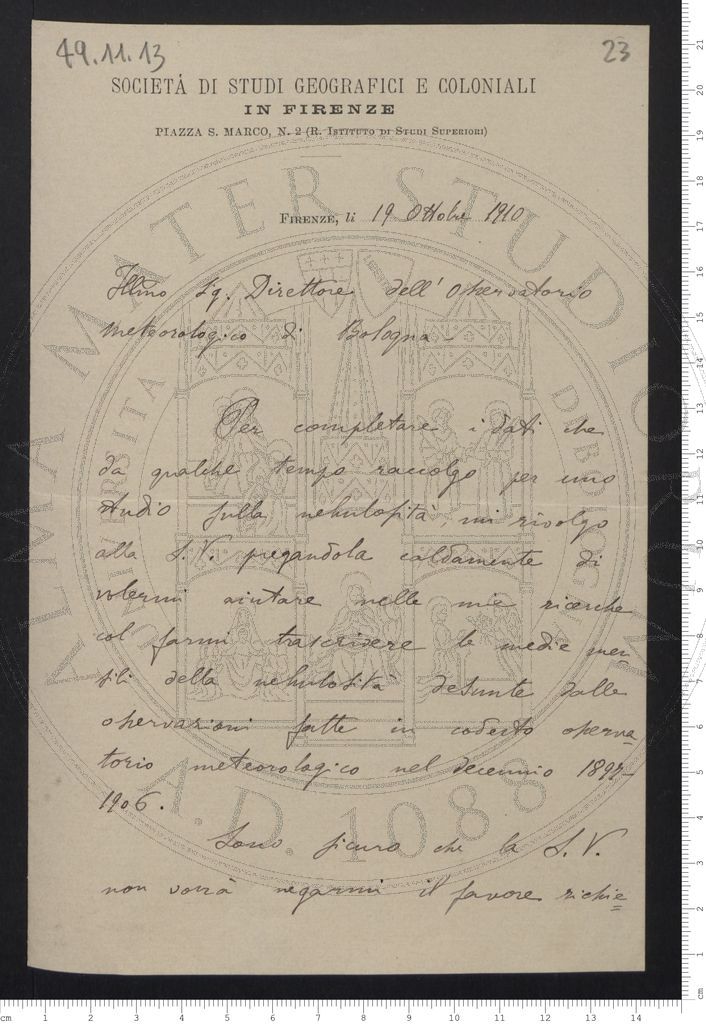 49.11.13
23
SOCIETÀ DI STUDI GEOGRAFICI E COLONIALI
IN FIRENZE
PIAZZA S. MARCO, N. 2 (R. ISTITUTO DI STUDI SUPERIORI)
FIRENZE, li 19 Ottobre 1910
Illmo Sg. Direttore dell'Osservatorio
meteorologico di Bologna.
Per completare i dati che
da qualche tempo raccolgo per uno
studio sulla nebulosità, mi rivolgo
alla S.V. pregandola caldamente di
volermi aiutare nelle mie ricerche
col farmi trascrivere le medie men
sili della nebulosità desunte dalle
osservazioni fatte in codesto osserva
torio meteorologico nel decennio 1897-
1906.
Sono sicuro che la S.V.
non vorrà negarmi il favore richie
ALMA MATER STUDIORUM
A.D. 1088